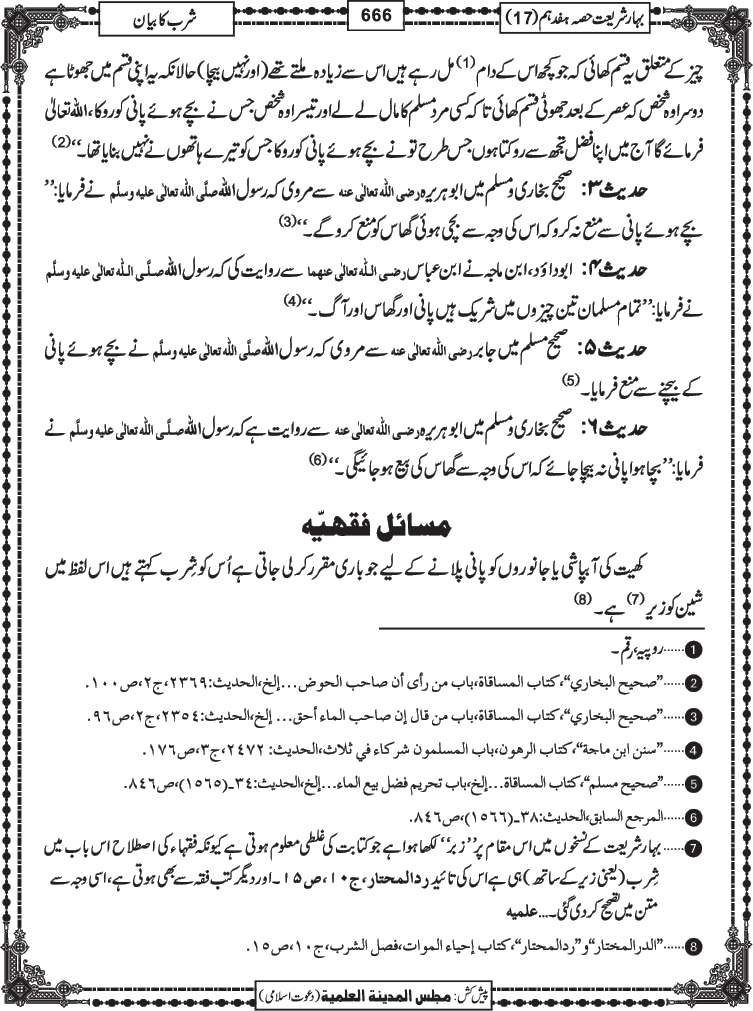 بہارشریعت حصہ ہفدہم (17)
666
شرب کا بیان
چیز کے متعلق یہ قسم کھائی کہ جو کچھ اس کے دام (1) مل رہے ہیں اس سے زیادہ ملتے تھے (اور نہیں بیچا) حالانکہ یہ اپنی قسم میں جھوٹا ہے
دوسرا وہ شخص کہ عصر کے بعد جھوٹی قسم کھائی تاکہ کسی مرد مسلم کا مال لے لے اور تیسرا وہ شخص جس نے بچے ہوئے پانی کو روکا، اللہ تعالیٰ
فرمائے گا آج میں اپنا فضل تجھ سے روکتا ہوں جس طرح تو نے بچے ہوئے پانی کو روکا جس کو تیرے ہاتھوں نے نہیں بنایا تھا۔‘‘ (2)
حدیث ۳: صحیح بخاری و مسلم میں ابوہریرہ رضی اللہ تعالٰی عنہ سے مروی کہ رسول اللہ صلَّی اللہ تعالٰی علیہ وسلَّم نے فرمایا: ’’
بچے ہوئے پانی سے منع نہ کرو کہ اس کی وجہ سے بچی ہوئی گھاس کو منع کرو گے۔‘‘ (3)
حدیث ۴: ابوداؤد، ابن ماجہ نے ابن عباس رضی اللہ تعالٰی عنہما سے روایت کی کہ رسول اللہ صلَّی اللہ تعالٰی علیہ وسلَّم
نے فرمایا: ’’تمام مسلمان تین چیزوں میں شریک ہیں پانی اور گھاس اور آگ۔‘‘ (4)
حدیث ۵: صحیح مسلم میں جابر رضی اللہ تعالٰی عنہ سے مروی کہ رسول اللہ صلَّی اللہ تعالٰی علیہ وسلَّم نے بچے ہوئے پانی
کے بیچنے سے منع فرمایا۔ (5)
حدیث ۶: صحیح بخاری و مسلم میں ابوہریرہ رضی اللہ تعالٰی عنہ سے روایت ہے کہ رسول اللہ صلَّی اللہ تعالٰی علیہ وسلَّم نے
فرمایا: ’’بچا ہوا پانی نہ بیچا جائے کہ اس کی وجہ سے گھاس کی بیع ہو جائیگی۔‘‘ (6)
مسائل فقہیّہ
کھیت کی آبپاشی یا جانوروں کو پانی پلانے کے لیے جو باری مقرر کر لی جاتی ہے اُس کو شِرب کہتے ہیں اس لفظ میں
شین کو زیرِ (7) ہے۔ (8)
1 ......روپیہ، رقم۔
2 ......’’صحيح البخاري‘‘، کتاب المساقاة، باب من رأى أن صاحب الحوض...إلخ، الحديث:۲۳۶۹، ج۲، ص۱۰۰.
3 ......’’صحيح البخاري‘‘، کتاب المساقاة، باب من قال إن صاحب الماء أحق... إلخ، الحديث:۲۳۵۴، ج۲، ص۹۶.
4 ......’’سنن ابن ماجة‘‘، کتاب الرهون، باب المسلمون شركاء في ثلاث، الحديث: ۲۴۷۲، ج۳، ص۱۷۶.
5 ......’’صحيح مسلم‘‘، کتاب المساقاة...إلخ، باب تحريم فضل بيع الماء...إلخ، الحديث:۳۴ـ(۱۵۶۵)، ص۸۴۶.
6 ......المرجع السابق، الحديث:۳۸ـ(۱۵۶۶)، ص۸۴۶.
7 ......بہارشریعت کے نسخوں میں اس مقام پر ’’زبر‘‘ لکھا ہوا ہے جو کتابت کی غلطی معلوم ہوتی ہے کیونکہ فقہاء کی اصطلاح اس باب میں
شِرب (یعنی زیر کے ساتھ) ہی ہے اس کی تائید ردالمحتار، ج۱۰، ص۱۵۔ اور دیگر کتب فقہ سے بھی ہوتی ہے، اسی وجہ سے
متن میں تصحیح کر دی گئی۔... علمیه
8 ......’’الدرالمختار‘‘ و’’ردالمحتار‘‘، کتاب إحياء الموات، فصل الشرب، ج۱۰، ص۱۵.
پیش کش: مجلس المدینة العلمیة (دعوت اسلامی)